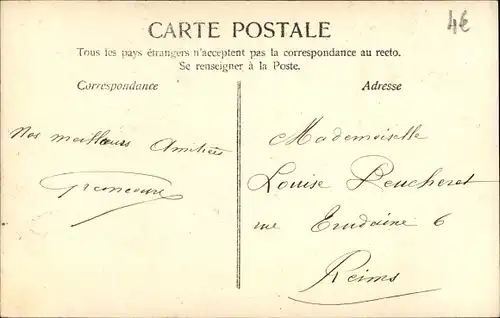 CARTE POSTALE
4€
Tous les pays étrangers n'acceptent pas la correspondance au recto.
Se renseigner à la Poste.
Correspondance
Adresse
Nos meilleurs Amitiés
Mademoiselle
Louise Peucheret
rue 6
Reims